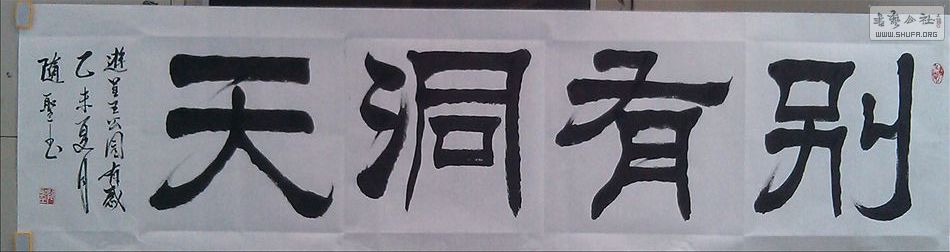 别有洞天
遊皇王公園有感
乙未夏月
隨聖書
書藝公社
WWW.SHUFA.ORG